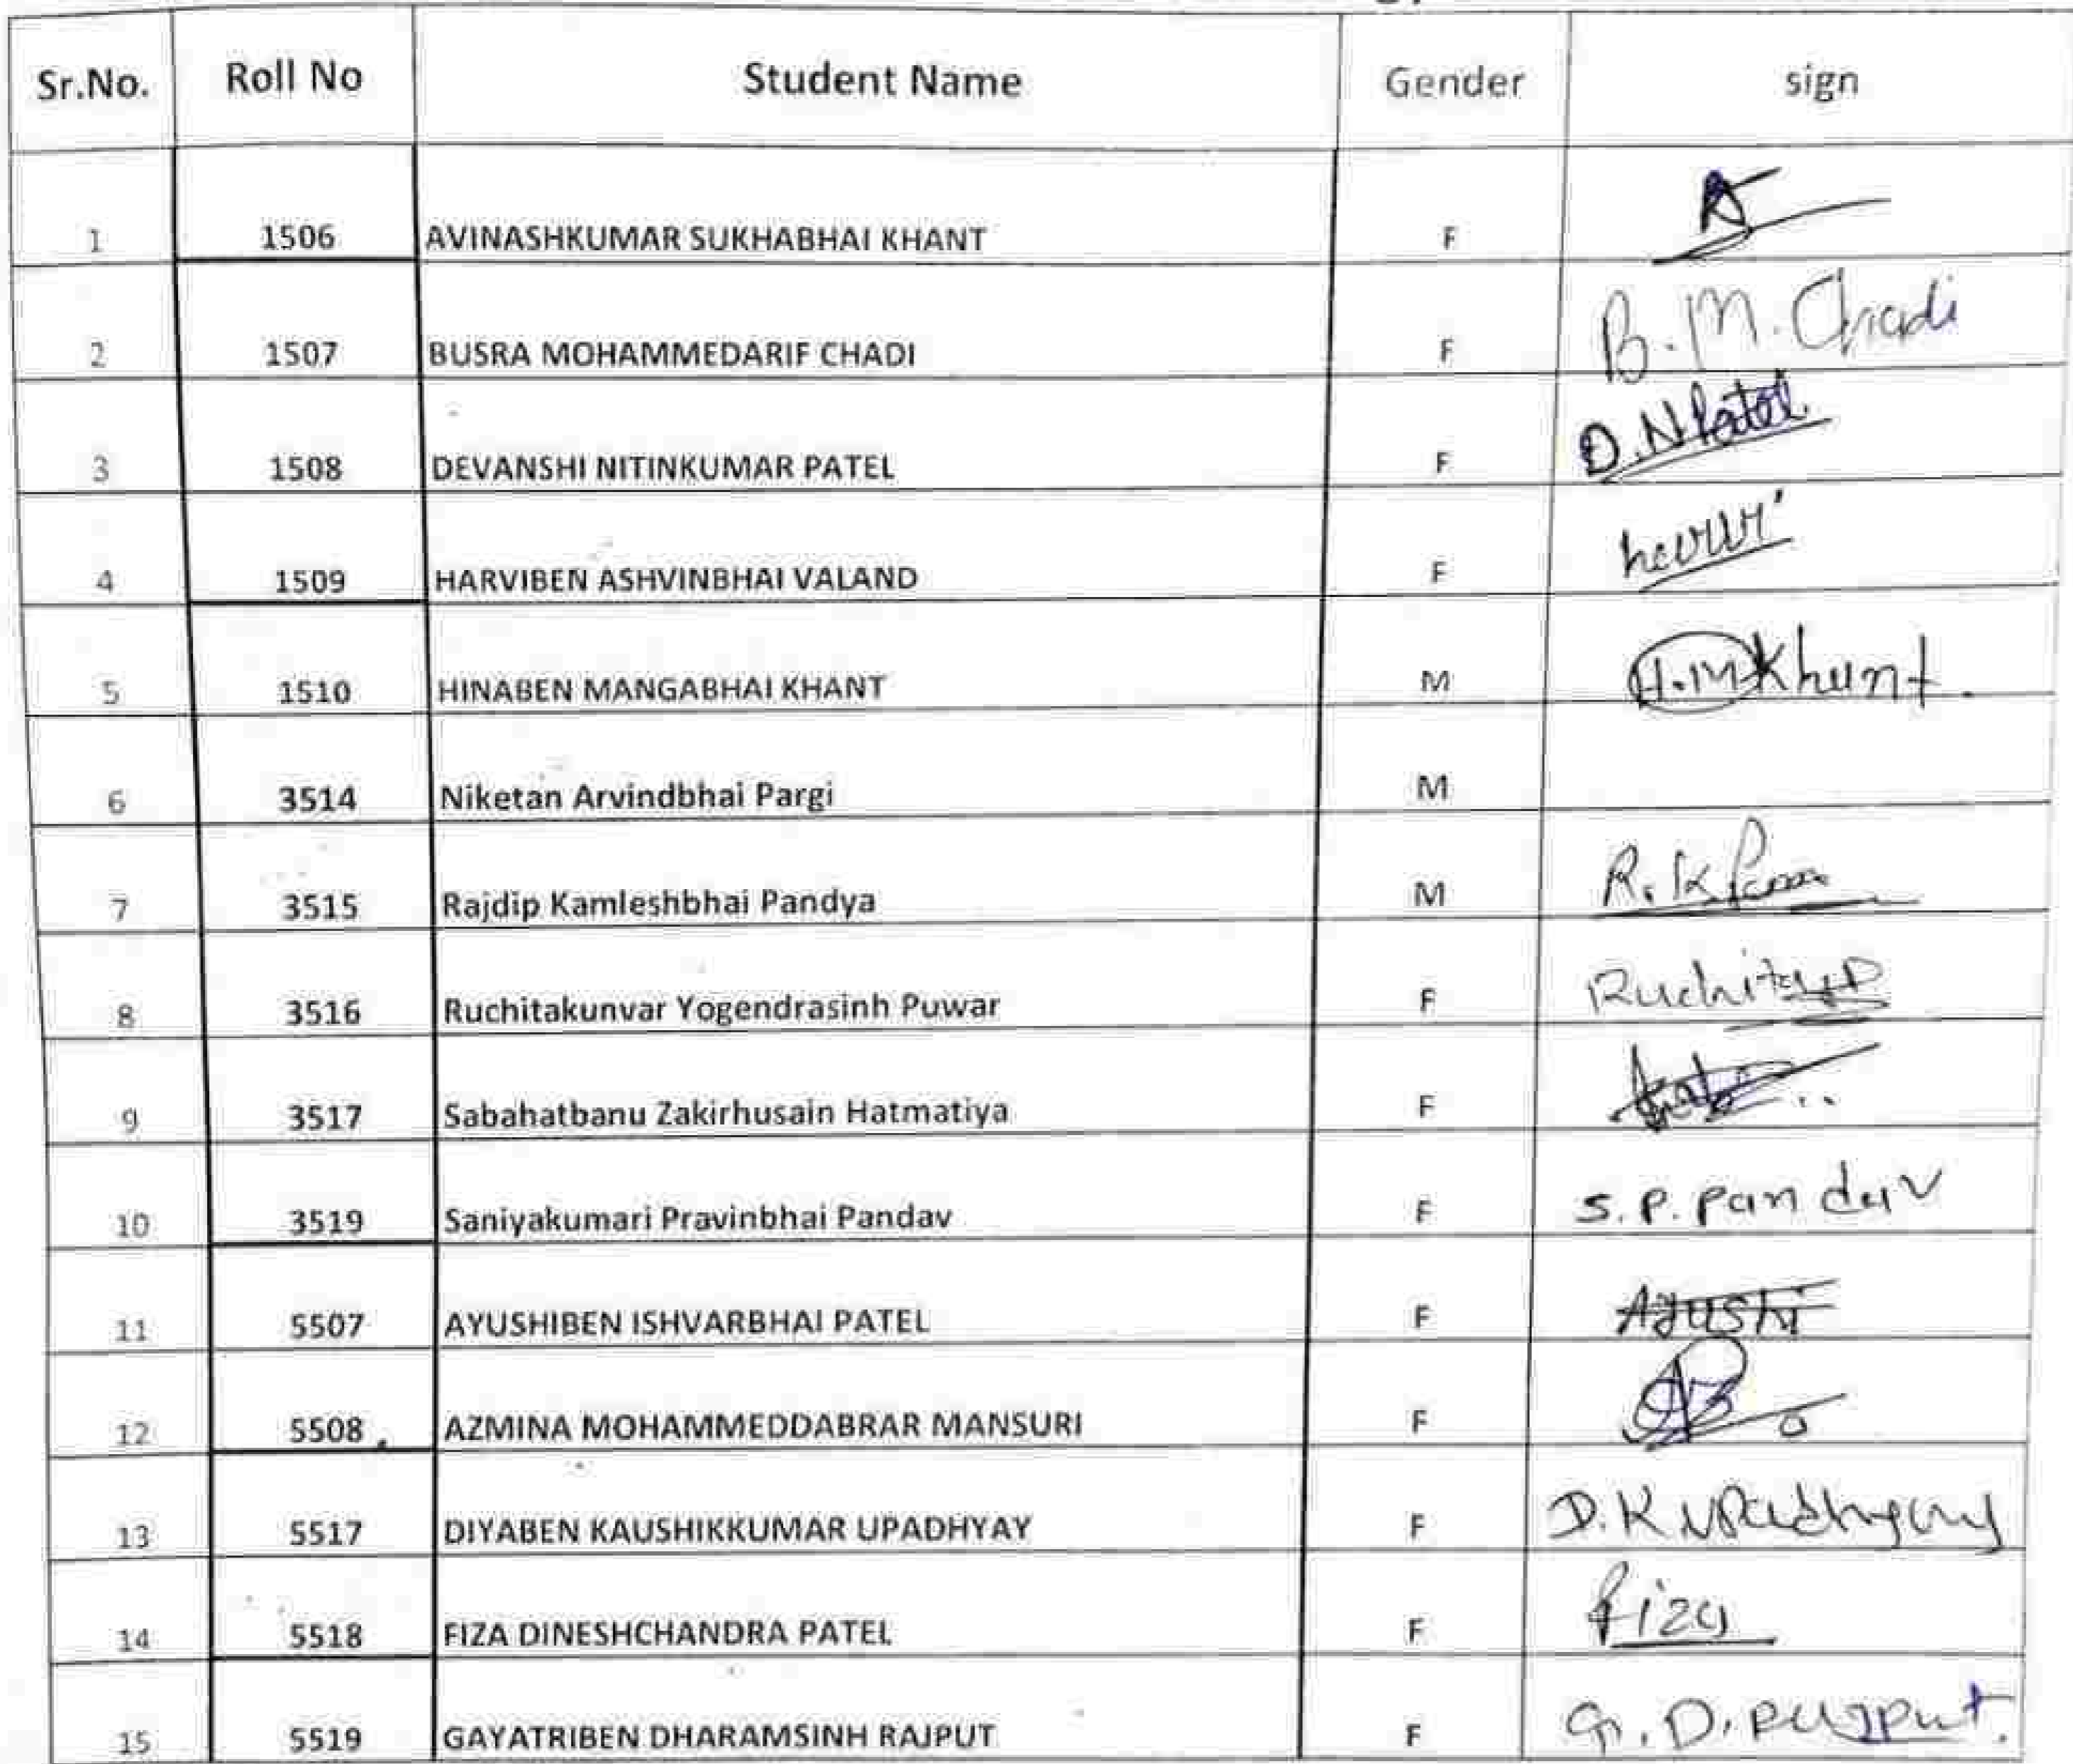 Sr.No. Roll No Student Name Gender sign
1 1506 AVINASHKUMAR SUKHABHAI KHANT F A
2 1507 BUSRA MOHAMMEDARIF CHADI F B. M. Chadi
3 1508 DEVANSHI NITINKUMAR PATEL F D. N Patel.
4 1509 HARVIBEN ASHVINBHAI VALAND F harvi
5 1510 HINABEN MANGABHAI KHANT M H.M Khant.
6 3514 Niketan Arvindbhai Pargi M
7 3515 Rajdip Kamleshbhai Pandya M R. K
8 3516 Ruchitakunvar Yogendrasinh Puwar F
9 3517 Sabahatbanu Zakirhusain Hatmatiya F
10 3519 Saniyakumari Pravinbhai Pandav F S. P. Pandav
11 5507 AYUSHIBEN ISHVARBHAI PATEL F Ayushi
12 5508 AZMINA MOHAMMEDDABRAR MANSURI F
13 5517 DIYABEN KAUSHIKKUMAR UPADHYAY F D. K Upadhyay
14 5518 FIZA DINESHCHANDRA PATEL F Fiza
15 5519 GAYATRIBEN DHARAMSINH RAJPUT F G. D. Rajput.